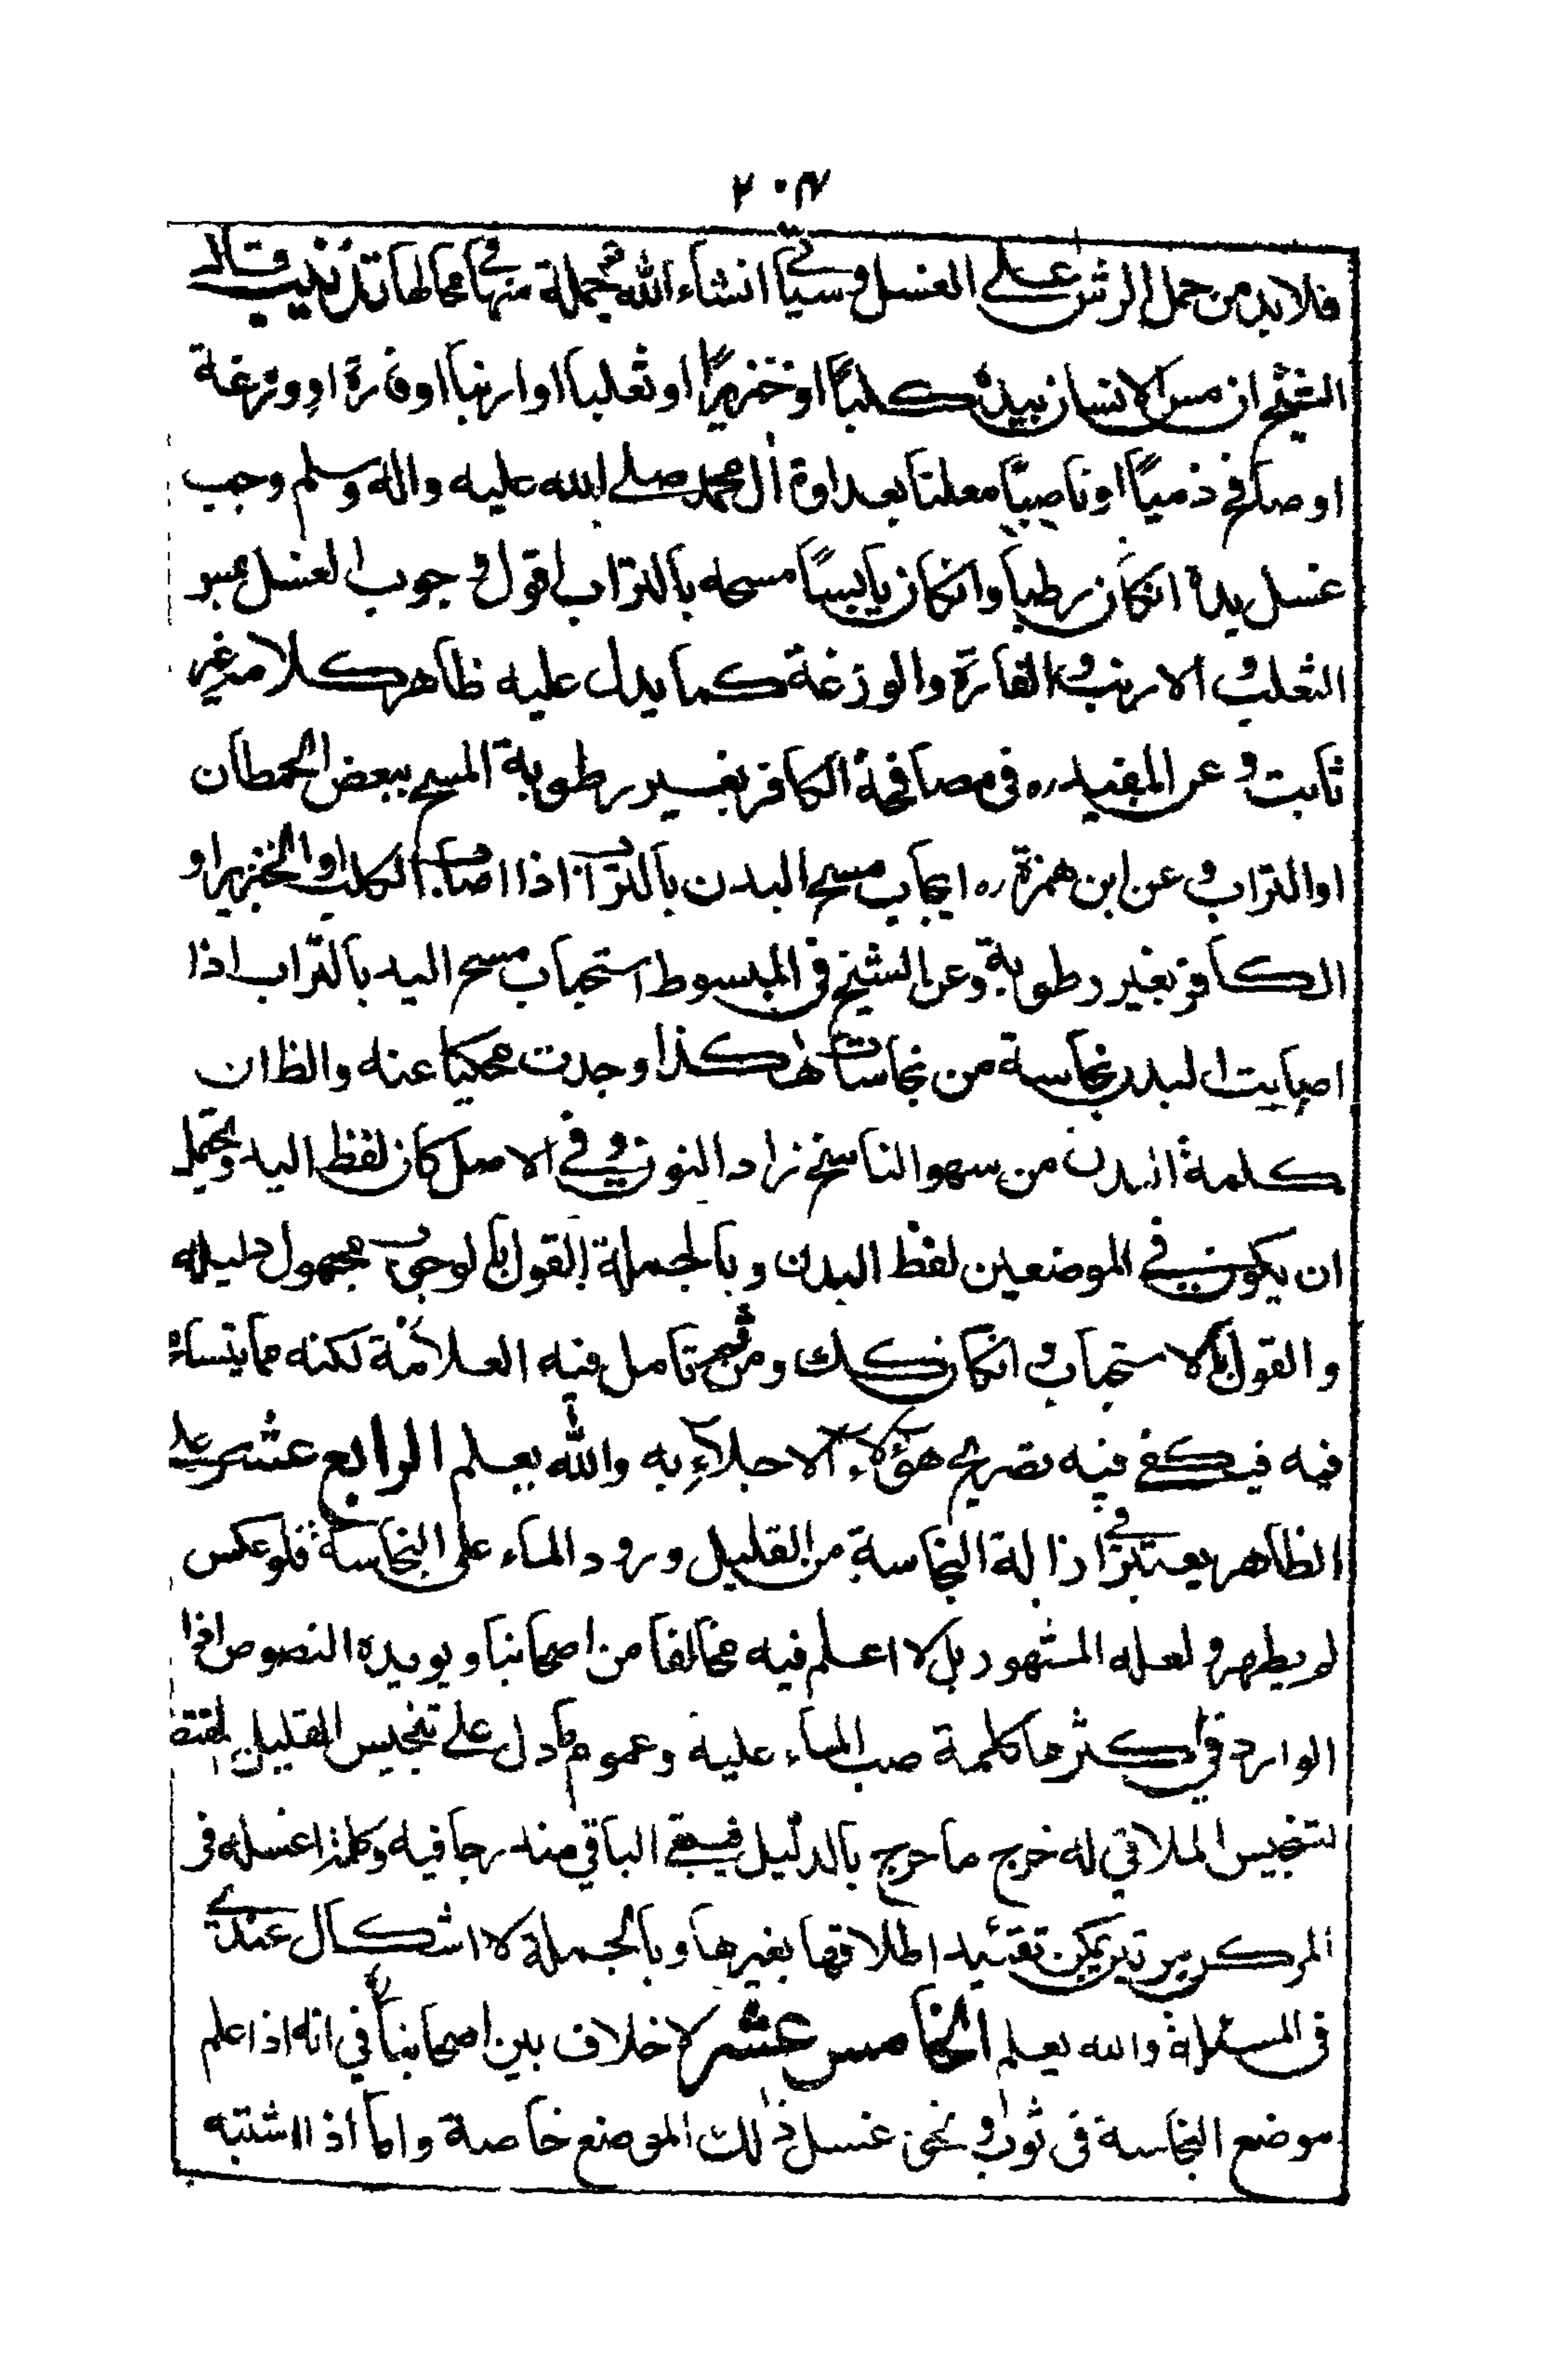 ٢٠٧
فلا بد من حمل الرش على الغسل وسيأتي انشاء الله جملة منها في محالها تذنيب قال
الشيخ ان مس الانسان بيده كلبًا او خنزيرًا او ثعلبا او ارنبا او فارة او وزغة
او صافح ذميًا او ناصبيًا معلنا بعداوة آل محمد صلى الله عليه واله وسلم وجب
غسل يده انكان رطبا وانكان يابسًا مسحه بالتراب اقول وجوب الغسل
الثعلب و الارنب و الفارة والوزغة كما يدل عليه ظاهر كلامه غير
ثابت و عن المفيد ره في مصافحة الكافر بغير رطوبة المسح ببعض الحيطان
او التراب و عن ابن حمزة ره ايجاب مسح البدن بالتراب اذا اصاب الكلب او الخنزير او
الكافر بغير رطوبة وعن الشيخ في المبسوط استحباب مسح اليد بالتراب اذا
اصابت البدن نجاسة من نجاسات هكذا وجدت محكيا عنه والظ ان
كلمة البدن من سهو الناسخ زاد النون و في الاصل كان لفظ اليد ويحتمل
ان يكون في الموضعين لفظ البدن وبالجملة القول بالوجوب مجهول دليله
والقول بالاستحباب و انكان كك ومن ثم تامل فيه العلامة لكنه مما يتسامح
فيه فيكفي فيه تصريح هؤلاء الاجلاء به والله يعلم الرابع عشر على
الظاهر يعتبر في ازالة النجاسة من القليل ورود الماء على النجاسة فلو عكس
لم يطهر و لعله المشهور بل لا اعلم فيه مخالفا من اصحابنا ويويده النصوص
الوارد في اكثرها كلمة صب الماء عليه وعموم ما دل على تنجيس القليل
لتنجيس الملاقي له خرج ما خرج بالدليل فيبقى الباقي مندرجا فيه وكلمة اغسله في
المركن مرتين يمكن تقييد اطلاقها بغيرها وبالجملة لا اشكال عندي
في المسئلة والله يعلم الخامس عشر لا خلاف بين اصحابنا في انه اذا علم
موضع النجاسة في ثوب او نحوه غسل ذلك الموضع خاصة واما اذا اشتبه